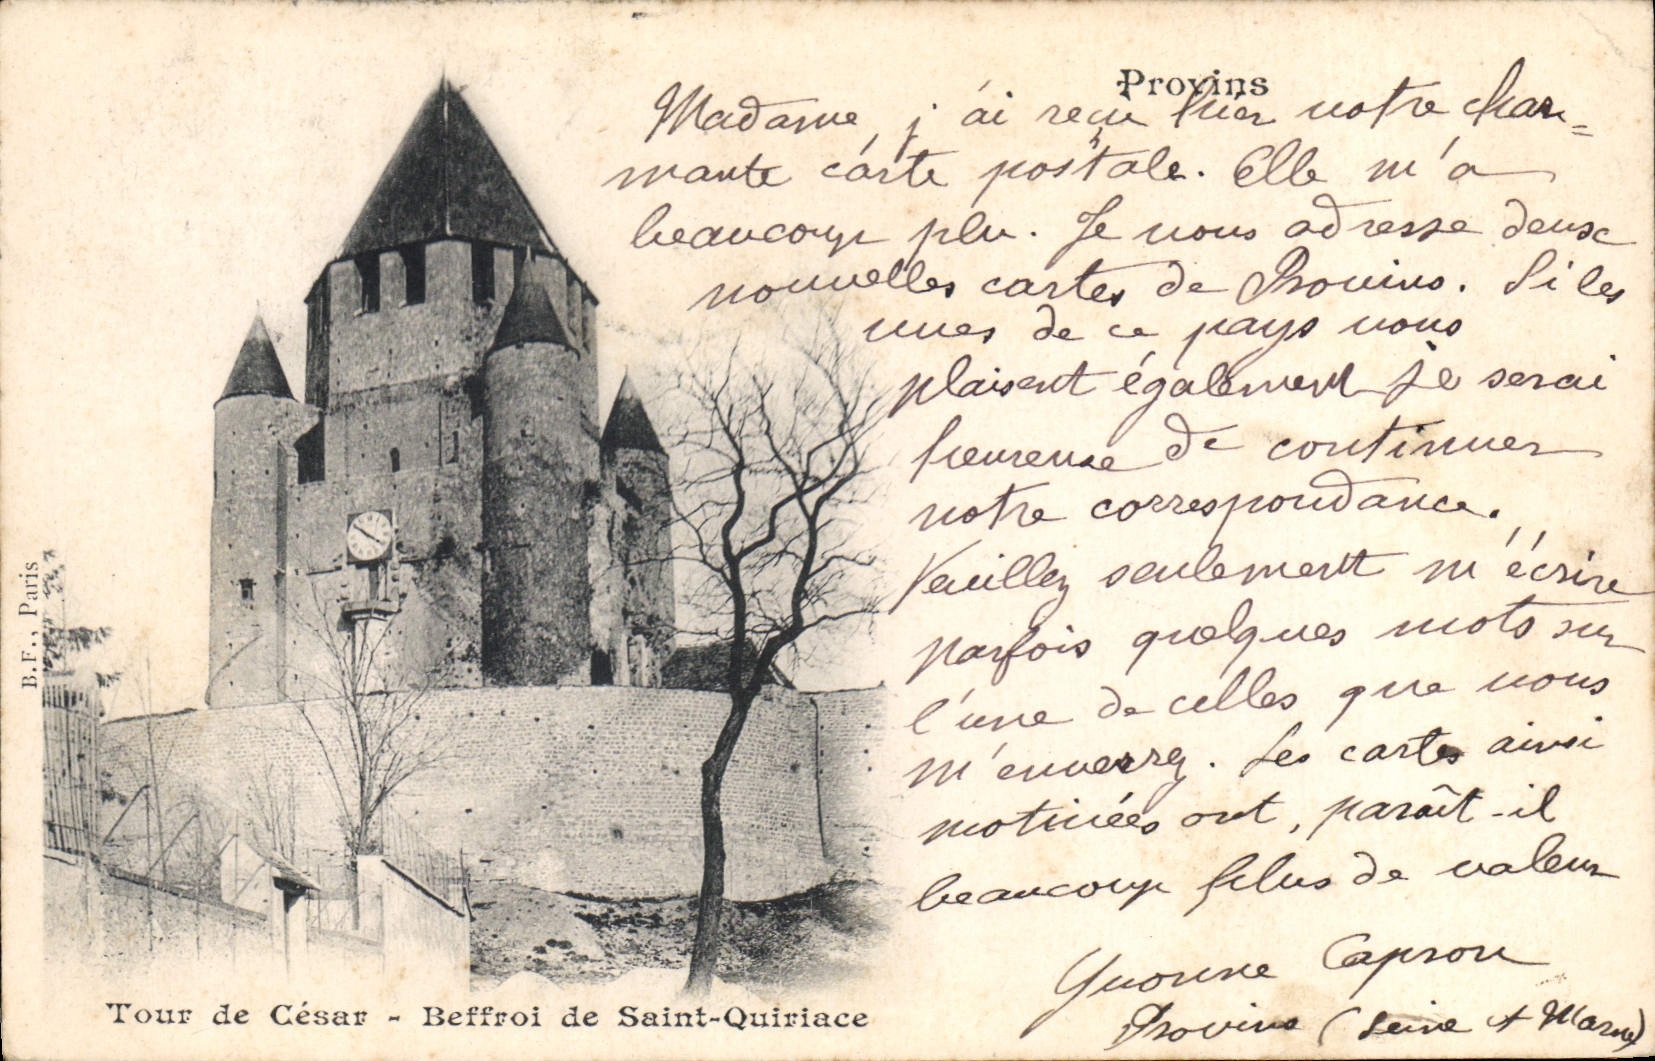 Provins
Madame, j'ai reçu hier votre char=
mante carte postale. Elle m'a
beaucoup plu. Je vous adresse deux
nouvelles cartes de Provins. Si les
vues de ce pays vous
plaisent également je serai
heureuse de continuer
notre correspondance.
Veuillez seulement m'écrire
parfois quelques mots sur
l'une de celles que vous
m'enverrez. Les cartes ainsi
motivées ont, paraît-il
beaucoup plus de valeur
Yvonne Capron
Provins (Seine et Marne)
B.F., Paris
Tour de César - Beffroi de Saint-Quiriace